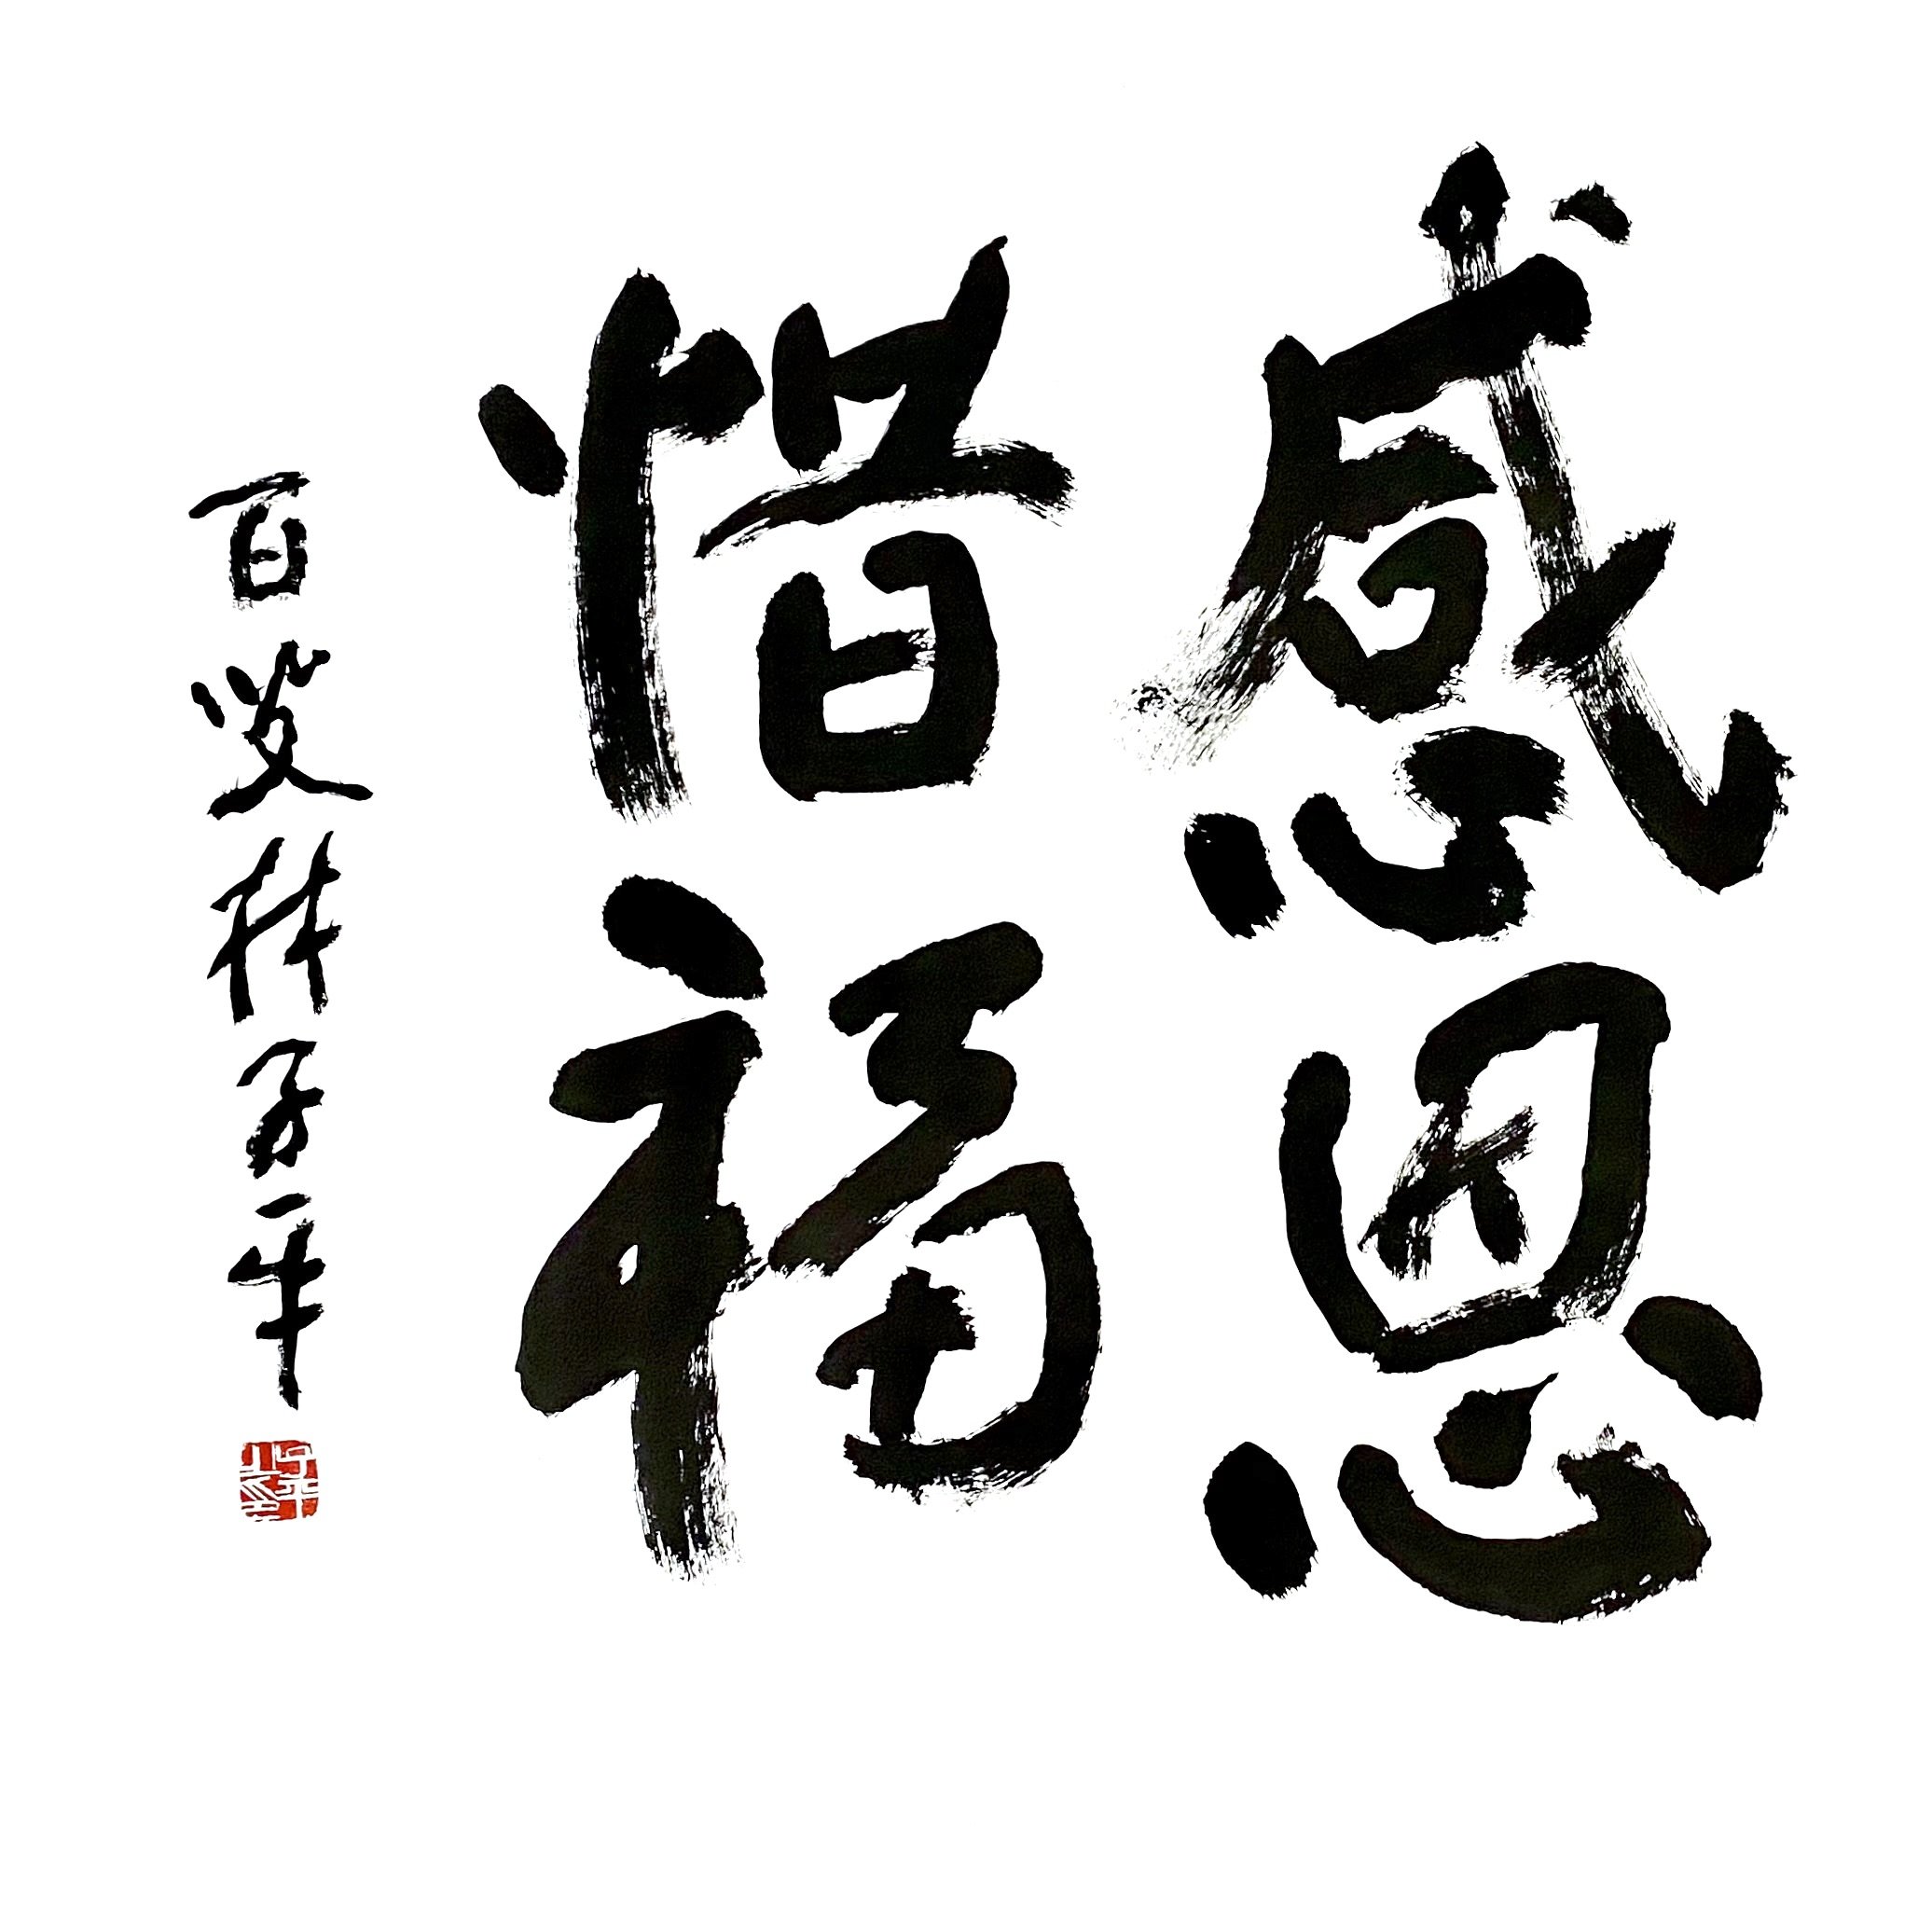 感恩
惜福
百 林子平